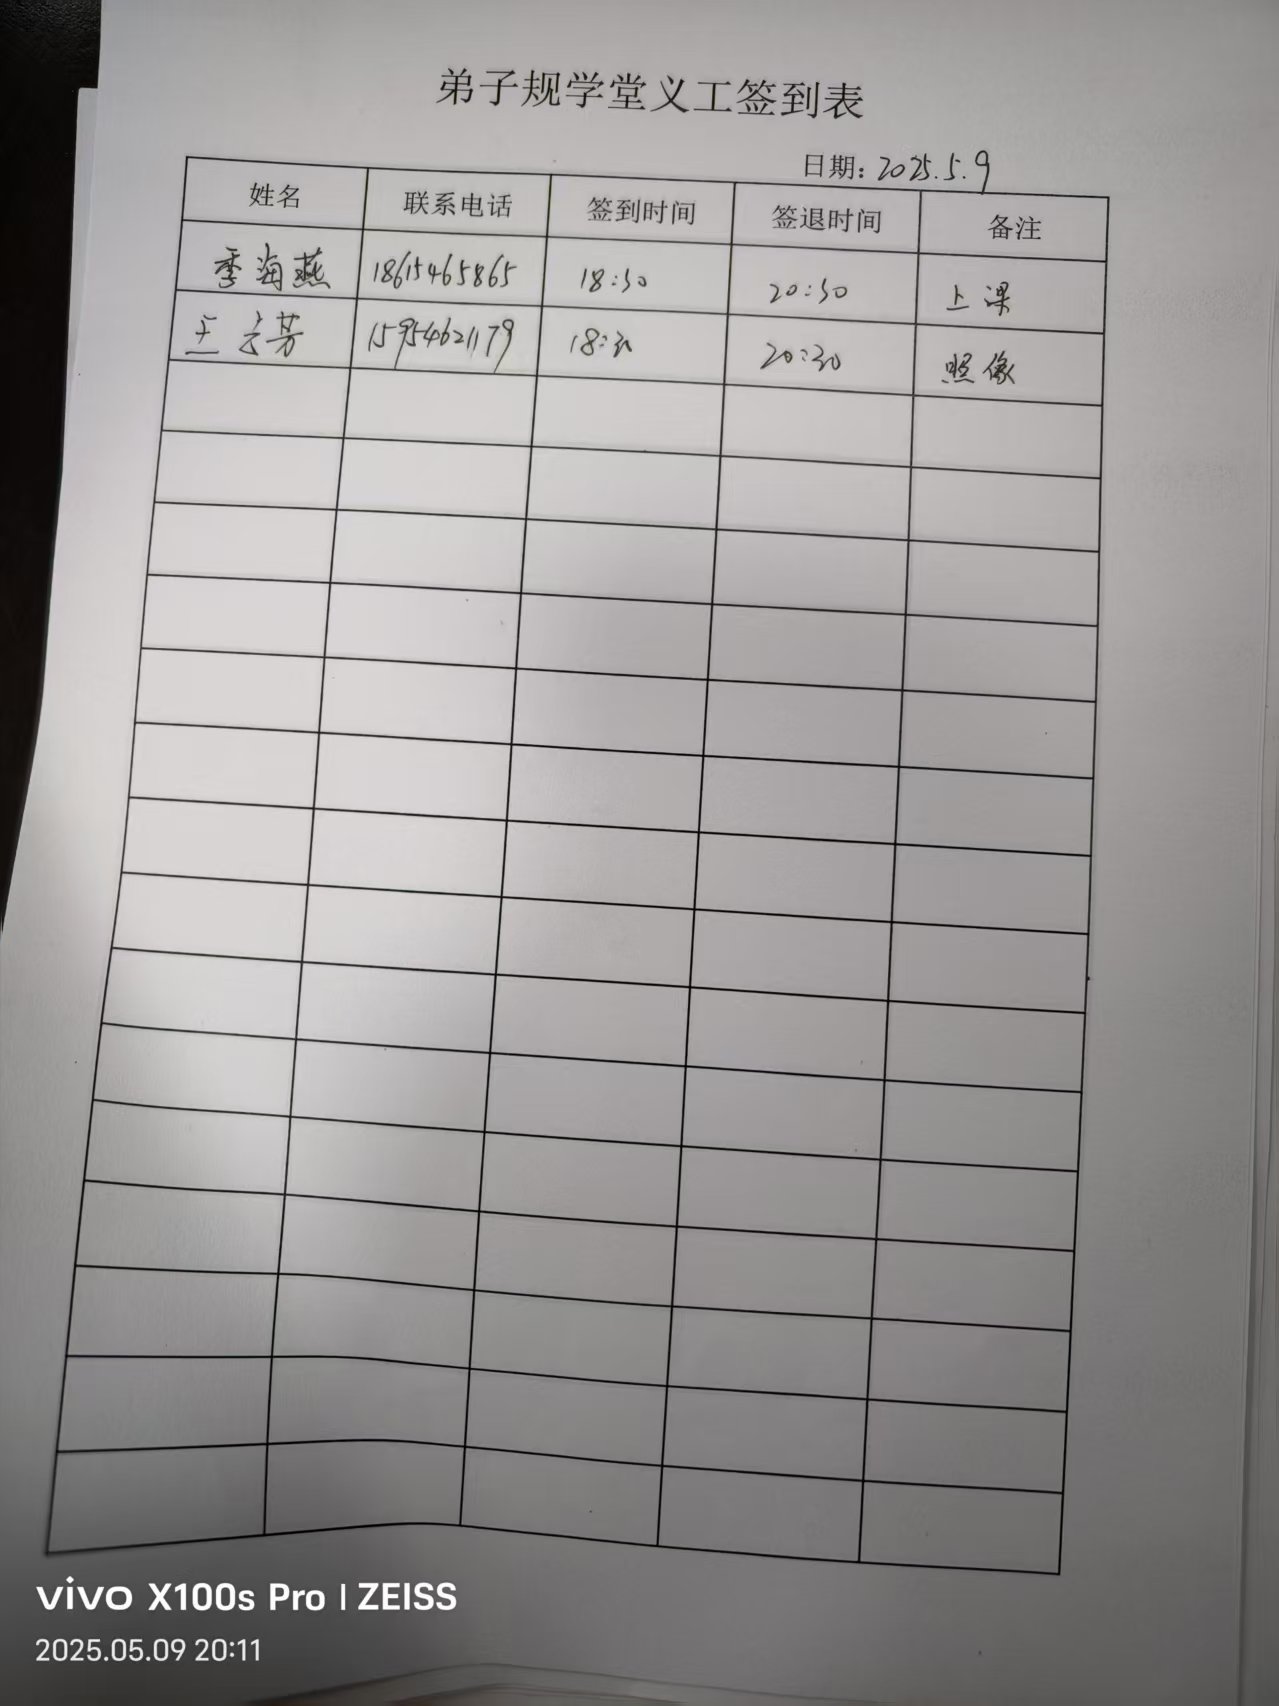 弟子规学堂义工签到表
日期：2025.5.9
姓名 联系电话 签到时间 签退时间 备注
季海燕 18615465865 18:30 20:30 上课
王立芳 15954621179 18:30 20:30 照像
vivo X100s Pro | ZEISS
2025.05.09 20:11